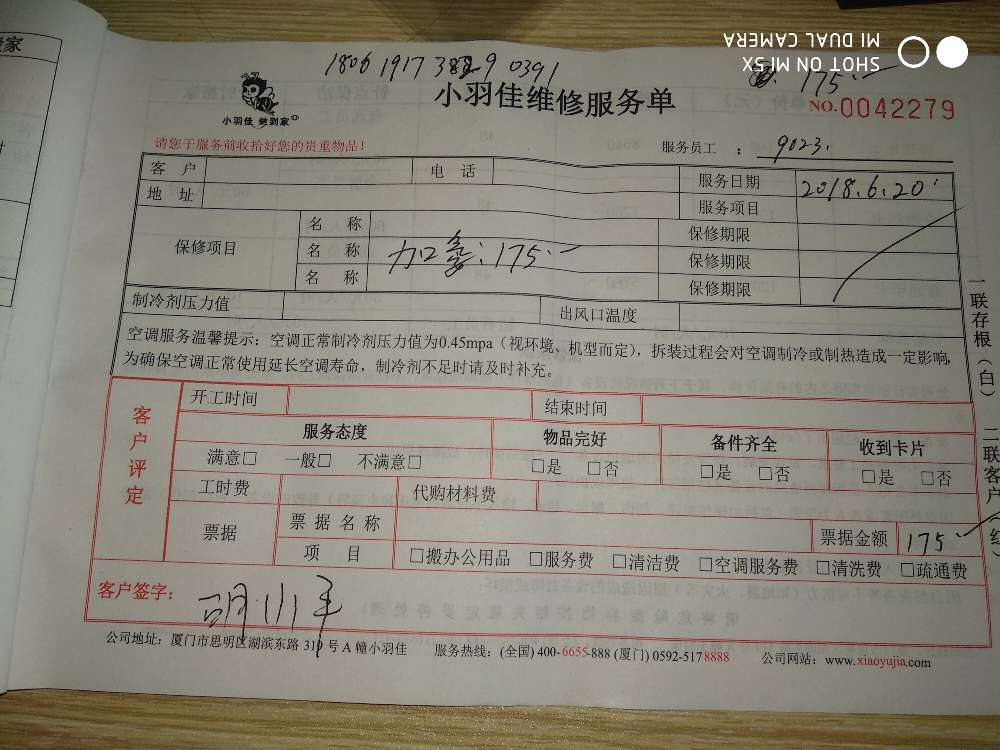 SHOT ON MI 5X
MI DUAL CAMERA
175.-
小羽佳 做到家
小羽佳维修服务单
NO.0042279
请您于服务前收拾好您的贵重物品!
服务员工 : 9023.
客 户
电 话
服务日期 2018.6.20
地 址
服务项目
保修项目
名 称
保修期限
名 称
175.-
保修期限
名 称
保修期限
制冷剂压力值
出风口温度
空调服务温馨提示:空调正常制冷剂压力值为0.45mpa(视环境、机型而定),拆装过程会对空调制冷或制热造成一定影响,
为确保空调正常使用延长空调寿命,制冷剂不足时请及时补充。
客户评定
开工时间
结束时间
服务态度
物品完好
备件齐全
收到卡片
满意□ 一般□ 不满意□
□是 □否
□是 □否
□是 □否
工时费
代购材料费
票据
票据名称
票据金额 175
项 目
□搬办公用品 □服务费 □清洁费 □空调服务费 □清洗费 □疏通费
客户签字:
公司地址:厦门市思明区湖滨东路319号A幢小羽佳 服务热线:(全国) 400-6655-888 (厦门) 0592-5178888 公司网站:www.xiaoyujia.com
一联存根(白) 二联客户(红)